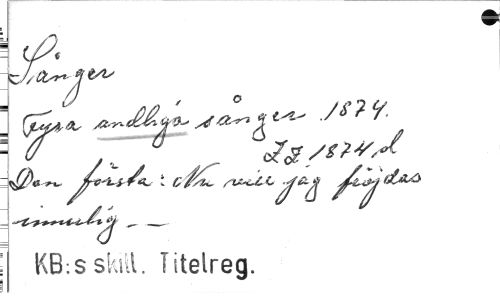 Sånger
Fyra andliga sånger 1874.
ZZ 1874 d
Den första: Nu vill jag fröjdas
innerlig - -
KB:s skill. Titelreg.